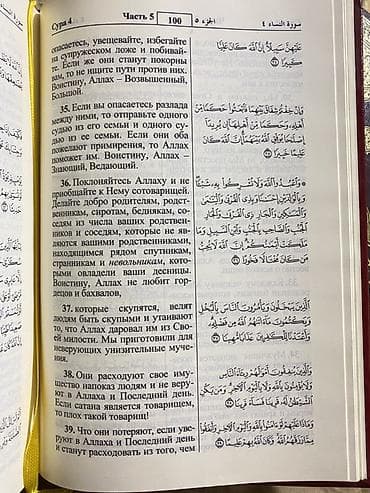 Сура 4
Часть 5
100
الجزء ٥
سورة النساء ٤
опасаетесь, увещевайте, избегайте
на супружеском ложе и побивай-
те. Если же они станут покорны
вам, то не ищите пути против них.
Воистину, Аллах – Возвышенный,
Большой.
35. Если вы опасаетесь разлада
между ними, то отправьте одного
судью из его семьи и одного су-
дью из ее семьи. Если они оба
пожелают примирения, то Аллах
поможет им. Воистину, Аллах –
Знающий, Ведающий.
36. Поклоняйтесь Аллаху и не
приобщайте к Нему сотоварищей.
Делайте добро родителям, родст-
венникам, сиротам, беднякам, со-
седям из числа ваших родствен-
ников и соседям, которые не яв-
ляются вашими родственниками,
находящимся рядом спутникам,
странникам и невольникам, кото-
рыми овладели ваши десницы.
Воистину, Аллах не любит гор-
децов и бахвалов,
37. которые скупятся, велят
людям быть скупыми и утаивают
то, что Аллах даровал им из Сво-
ей милости. Мы приготовили для
неверующих унизительные муче-
ния.
38. Они расходуют свое иму-
щество напоказ людям и не веру-
ют в Аллаха и Последний день.
Если сатана является товарищем,
то плох такой товарищ!
39. Что они потеряют, если уве-
руют в Аллаха и Последний день
и станут расходовать из того, чем
عَلَيْهِنَّ سَبِيلًا إِنَّ اللَّهَ كَانَ عَلِيًّا
كَبِيرًا ٣٤
وَإِنْ خِفْتُمْ شِقَاقَ بَيْنِهِمَا فَابْعَثُوا حَكَمًا مِنْ
أَهْلِهِ وَحَكَمًا مِنْ أَهْلِهَا إِنْ يُرِيدَا
إِصْلَاحًا يُوَفِّقِ اللَّهُ بَيْنَهُمَا إِنَّ اللَّهَ كَانَ
عَلِيمًا خَبِيرًا ٣٥
وَاعْبُدُوا اللَّهَ وَلَا تُشْرِكُوا بِهِ شَيْئًا
وَبِالْوَالِدَيْنِ إِحْسَانًا وَبِذِي الْقُرْبَى وَالْيَتَامَى
وَالْمَسَاكِينِ وَالْجَارِ ذِي الْقُرْبَى وَالْجَارِ
الْجُنُبِ وَالصَّاحِبِ بِالْجَنْبِ وَابْنِ السَّبِيلِ وَمَا
مَلَكَتْ أَيْمَانُكُمْ إِنَّ اللَّهَ لَا يُحِبُّ
مَنْ كَانَ مُخْتَالًا فَخُورًا ٣٦
الَّذِينَ يَبْخَلُونَ وَيَأْمُرُونَ النَّاسَ بِالْبُخْلِ
وَيَكْتُمُونَ مَا آتَاهُمُ اللَّهُ مِنْ فَضْلِهِ
وَأَعْتَدْنَا لِلْكَافِرِينَ عَذَابًا مُهِينًا ٣٧
وَالَّذِينَ يُنْفِقُونَ أَمْوَالَهُمْ رِئَاءَ النَّاسِ
وَلَا يُؤْمِنُونَ بِاللَّهِ وَلَا بِالْيَوْمِ الْآخِرِ وَمَنْ يَكُنِ
الشَّيْطَانُ لَهُ قَرِينًا فَسَاءَ قَرِينًا ٣٨
وَمَاذَا عَلَيْهِمْ لَوْ آمَنُوا بِاللَّهِ وَالْيَوْمِ الْآخِرِ وَأَنْفَقُوا
مِمَّا رَزَقَهُمُ اللَّهُ وَكَانَ اللَّهُ بِهِمْ عَلِيمًا ٣٩